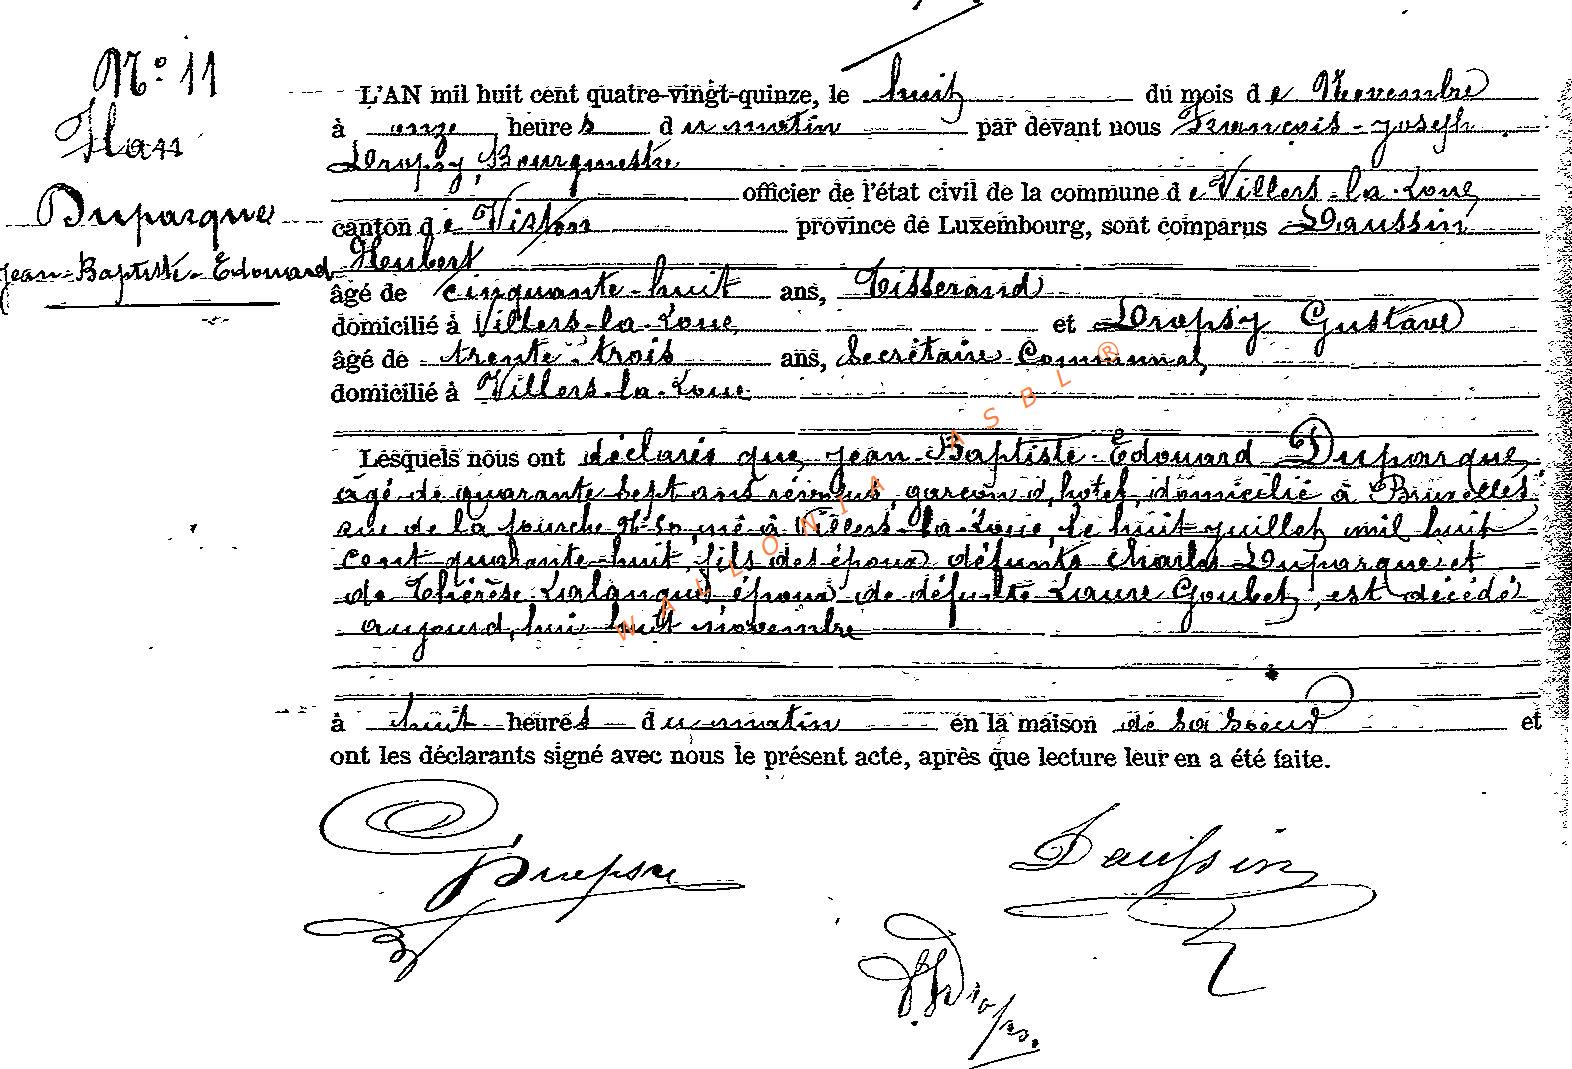 N° 11
Duparque
Jean-Baptiste-Edouard
L'AN mil huit cent quatre-vingt-quinze, le huit du mois de Novembre
à onze heures du matin par devant nous François-Joseph
Dropsy, Bourgmestre
officier de l'état civil de la commune de Villers-la-Loue,
canton de Virton province de Luxembourg, sont comparus Daussin
Heubert
âgé de cinquante-huit ans, Tisserand
domicilié à Villers-la-Loue et Dropsy Gustave
âgé de trente-trois ans, Secrétaire Communal,
domicilié à Villers-la-Loue
Lesquels nous ont déclarés que Jean-Baptiste-Edouard Duparque,
agé de quarante sept ans révolus, garçon d'hotel, domicilié à Bruxelles
rue de la fourche, né à Villers-la-Loue, le huit juillet mil huit
cent quarante-huit, fils des époux défunts Charles Duparque et
de Thérèse Lalangue, époux de défunte Laure Goubet, est décédé
aujourd'hui huit novembre
à huit heures du matin en la maison de sa soeur et
ont les déclarants signé avec nous le présent acte, après que lecture leur en a été faite.
Dropsy
Daussin
Dropsy
WALLONIA ASBL ®